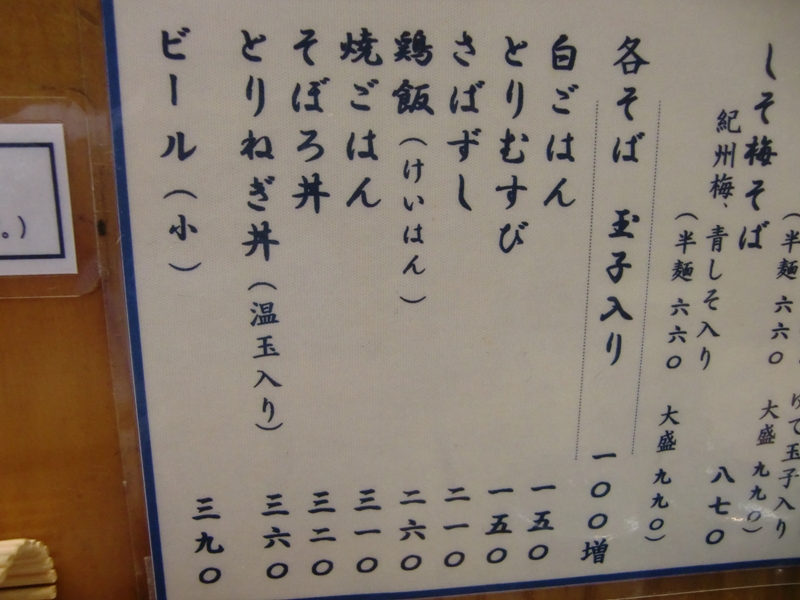 ゆで玉子入り
（半麺 六六〇 大盛 九九〇）
しそ梅そば 八七〇
紀州梅、青しそ入り
（半麺 六六〇 大盛 九九〇）
各そば 玉子入り 一〇〇増
白ごはん 一五〇
とりむすび 一五〇
さばずし 二一〇
鶏飯（けいはん） 二六〇
焼ごはん 三一〇
そぼろ丼 三二〇
とりねぎ丼（温玉入り） 三六〇
ビール（小） 三九〇
。）